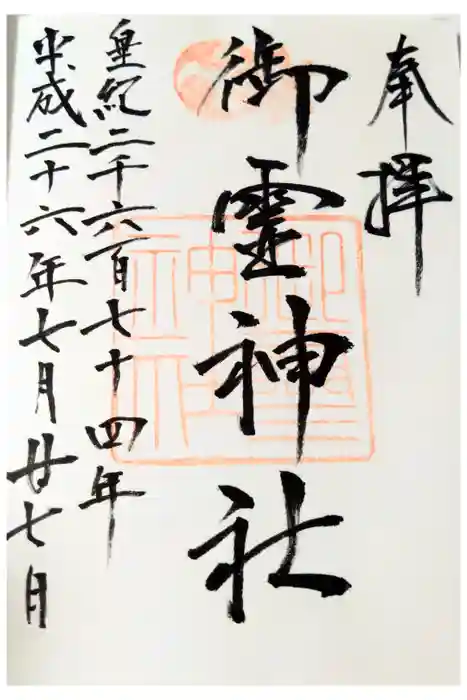 奉拝
御霊神社
皇紀二千六百七十四年
平成二十六年七月廿七月